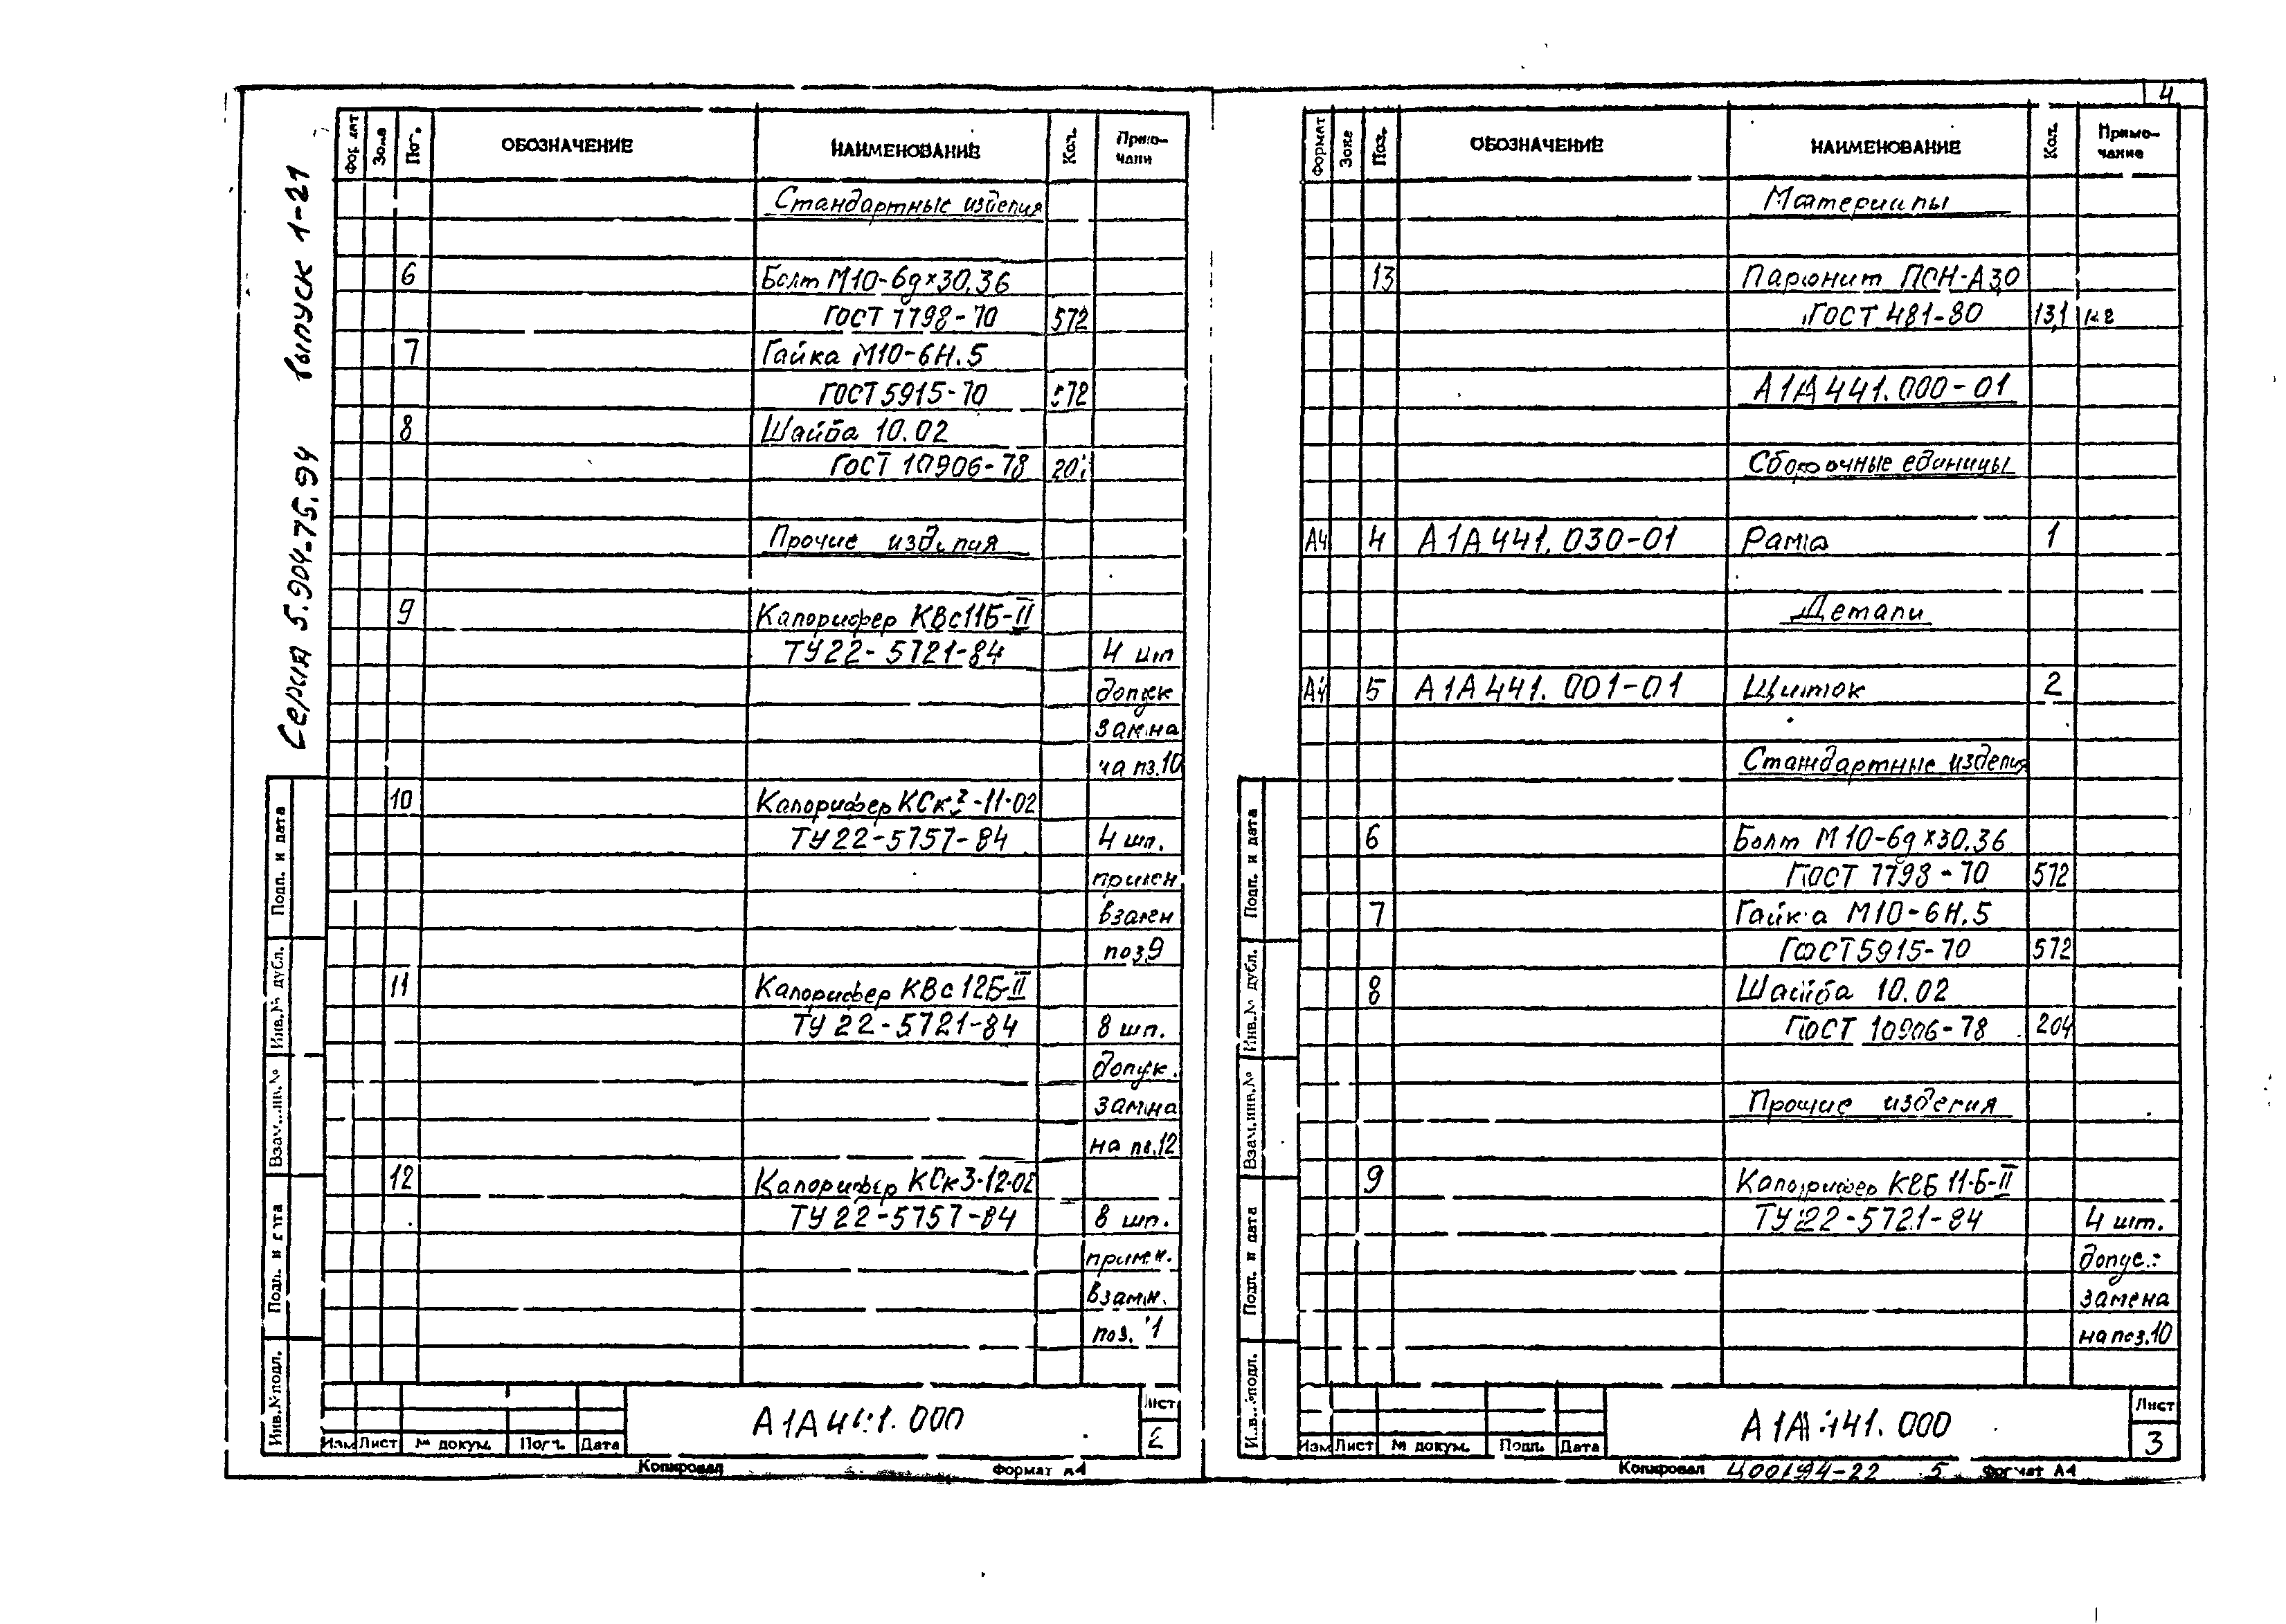 4
Серия 5.904-75.94 выпуск 1-21
Поз. ОБОЗНАЧЕНИЕ НАИМЕНОВАНИЕ Кол.
Стандартные изделия
6 Болт М10-6gх30.36
ГОСТ 7798-70 572
7 Гайка М10-6Н.5
ГОСТ 5915-70 572
8 Шайба 10.02
ГОСТ 10906-78
Прочие изделия
9 Калорифер КВс11Б-II
ТУ22-5721-84 4 шт
допуск
замна
на пз.10
10 Калорифер КСк3-11-02
ТУ22-5757-84 4 шт.
примен
взамен
поз.9
11 Калорифер КВс12Б-II
ТУ22-5721-84 8 шт.
допук.
замна
на пз.12
12 Калорифер КСк3-12-02
ТУ22-5757-84 8 шт.
примен.
взамн.
поз. 11
Подп. и дата
Инв.№ дубл.
Взам.инв.№
Подп. и дата
Инв.№подл.
Изм Лист № докум. Подп. Дата
А1А441.000
Лист
2
Копировал Формат А4
Формат Зона Поз. ОБОЗНАЧЕНИЕ НАИМЕНОВАНИЕ Кол. Приме-
чание
Материалы
13 Паронит ПОН-А3,0
ГОСТ 481-80 13,1 кг
А1А441.000-01
Сборочные единицы
А4 4 А1А441.030-01 Рама 1
Детали
А4 5 А1А441.001-01 Щиток 2
Стандартные изделия
6 Болт М10-6gх30.36
ГОСТ 7798-70 572
7 Гайка М10-6Н.5
ГОСТ 5915-70 572
8 Шайба 10.02
ГОСТ 10906-78 204
Прочие изделия
9 Калорифер КВБ 11-Б-II
ТУ22-5721-84 4 шт.
допус.:
замена
на поз.10
Подп. и дата
Инв.№ дубл.
Взам.инв.№
Подп. и дата
Инв.№подл.
Изм Лист № докум. Подп. Дата
А1А441.000
Лист
3
Копировал Ц00194-22 5 Формат А4